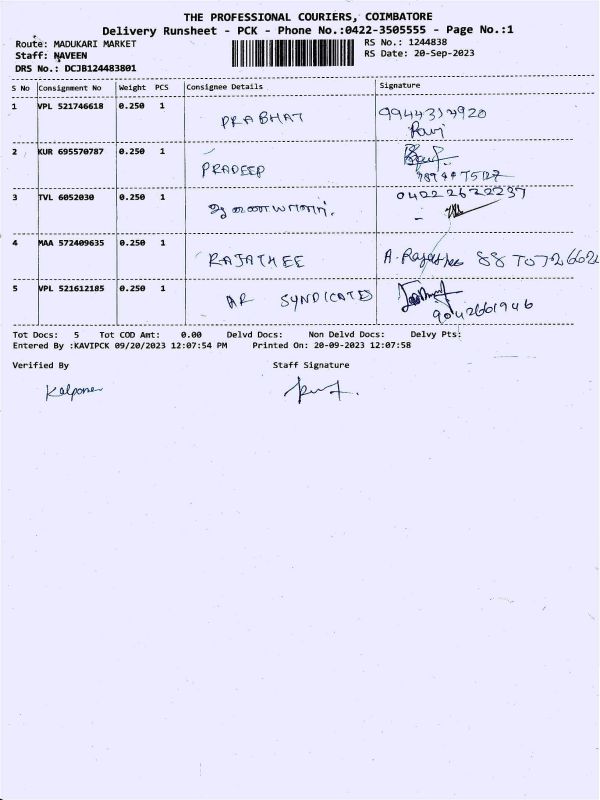 THE PROFESSIONAL COURIERS, COIMBATORE
Delivery Runsheet - PCK - Phone No.:0422-3505555 - Page No.:1
Route: MADUKARI MARKET RS No.: 1244838
Staff: NAVEEN RS Date: 20-Sep-2023
DRS No.: DCJB124483801
S No Consignment No Weight PCS Consignee Details Signature
1 VPL 521746618 0.250 1 PRABHAT
2 KUR 695570787 0.250 1 PRADEEP
3 TVL 6052030 0.250 1
4 MAA 572409635 0.250 1 RAJATHEE
5 VPL 521612185 0.250 1 AR SYNDICATE
9042661946
Tot Docs: 5 Tot COD Amt: 0.00 Delvd Docs: Non Delvd Docs: Delvy Pts:
Entered By :KAVIPCK 09/20/2023 12:07:54 PM Printed On: 20-09-2023 12:07:58
Verified By Staff Signature